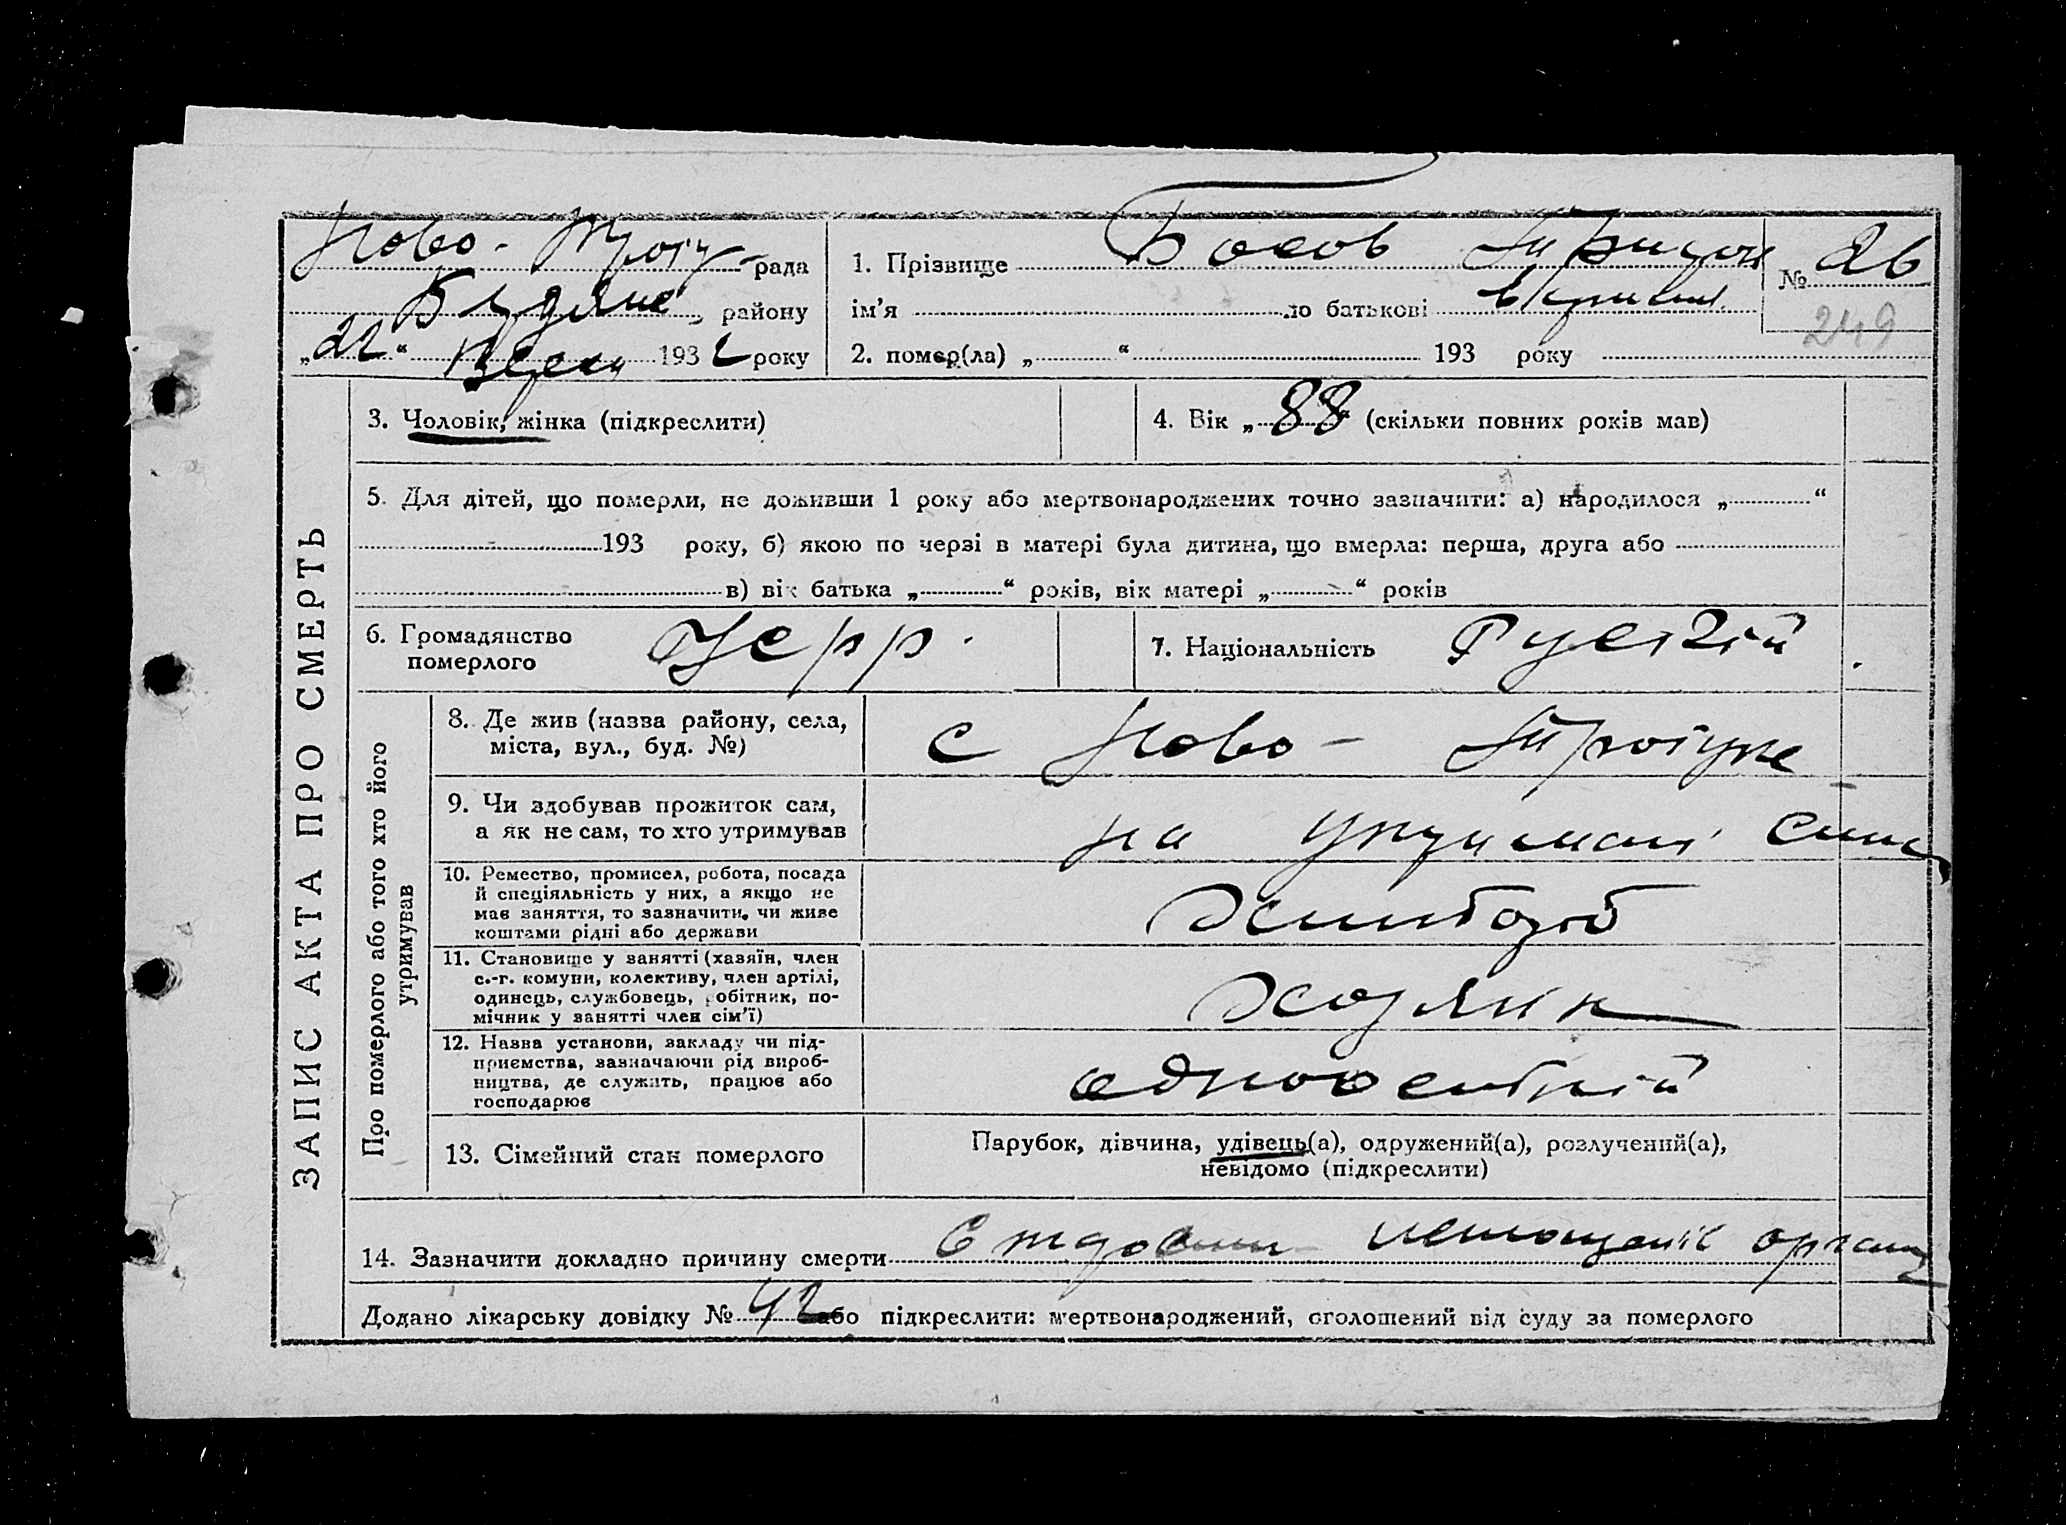 ЗАПИС АКТА ПРО СМЕРТЬ
Ново-Троїц рада
району
„22“ 1932 року
1. Прізвище Босов Тришон
ім’я по батькові
2. помер(ла) „ “ 193 року
№ 26
249
3. Чоловік, жінка (підкреслити)
4. Вік „88“ (скільки повних років мав)
5. Для дітей, що померли, не доживши 1 року або мертвонароджених точно зазначити: а) народилося „ “
193 року, б) якою по черзі в матері була дитина, що вмерла: перша, друга або
в) вік батька „ “ років, вік матері „ “ років
6. Громадянство
померлого
Усрр.
7. Національність Руский
Про померлого або того хто його
утримував
8. Де жив (назва району, села,
міста, вул., буд. №)
с Ново-Троїцке
9. Чи здобував прожиток сам,
а як не сам, то хто утримував
на утриманні сина
10. Ремество, промисел, робота, посада
й спеціяльність у них, а якщо не
мав заняття, то зазначити, чи живе
коштами рідні або держави
Хлибороб
11. Становище у занятті (хазяїн, член
с.-г. комуни, колективу, член артілі,
одинець, службовець, робітник, по-
мічник у занятті член сім’ї)
Хозяїн
12. Назва установи, закладу чи під-
приємства, зазначаючи рід вироб-
ництва, де служить, працює або
господарює
одноосибний
13. Сімейний стан померлого
Парубок, дівчина, удівець(а), одружений(а), розлучений(а),
невідомо (підкреслити)
14. Зазначити докладно причину смерти истощеніє
Додано лікарську довідку № 42 або підкреслити: мертвонароджений, оголошений від суду за померлого